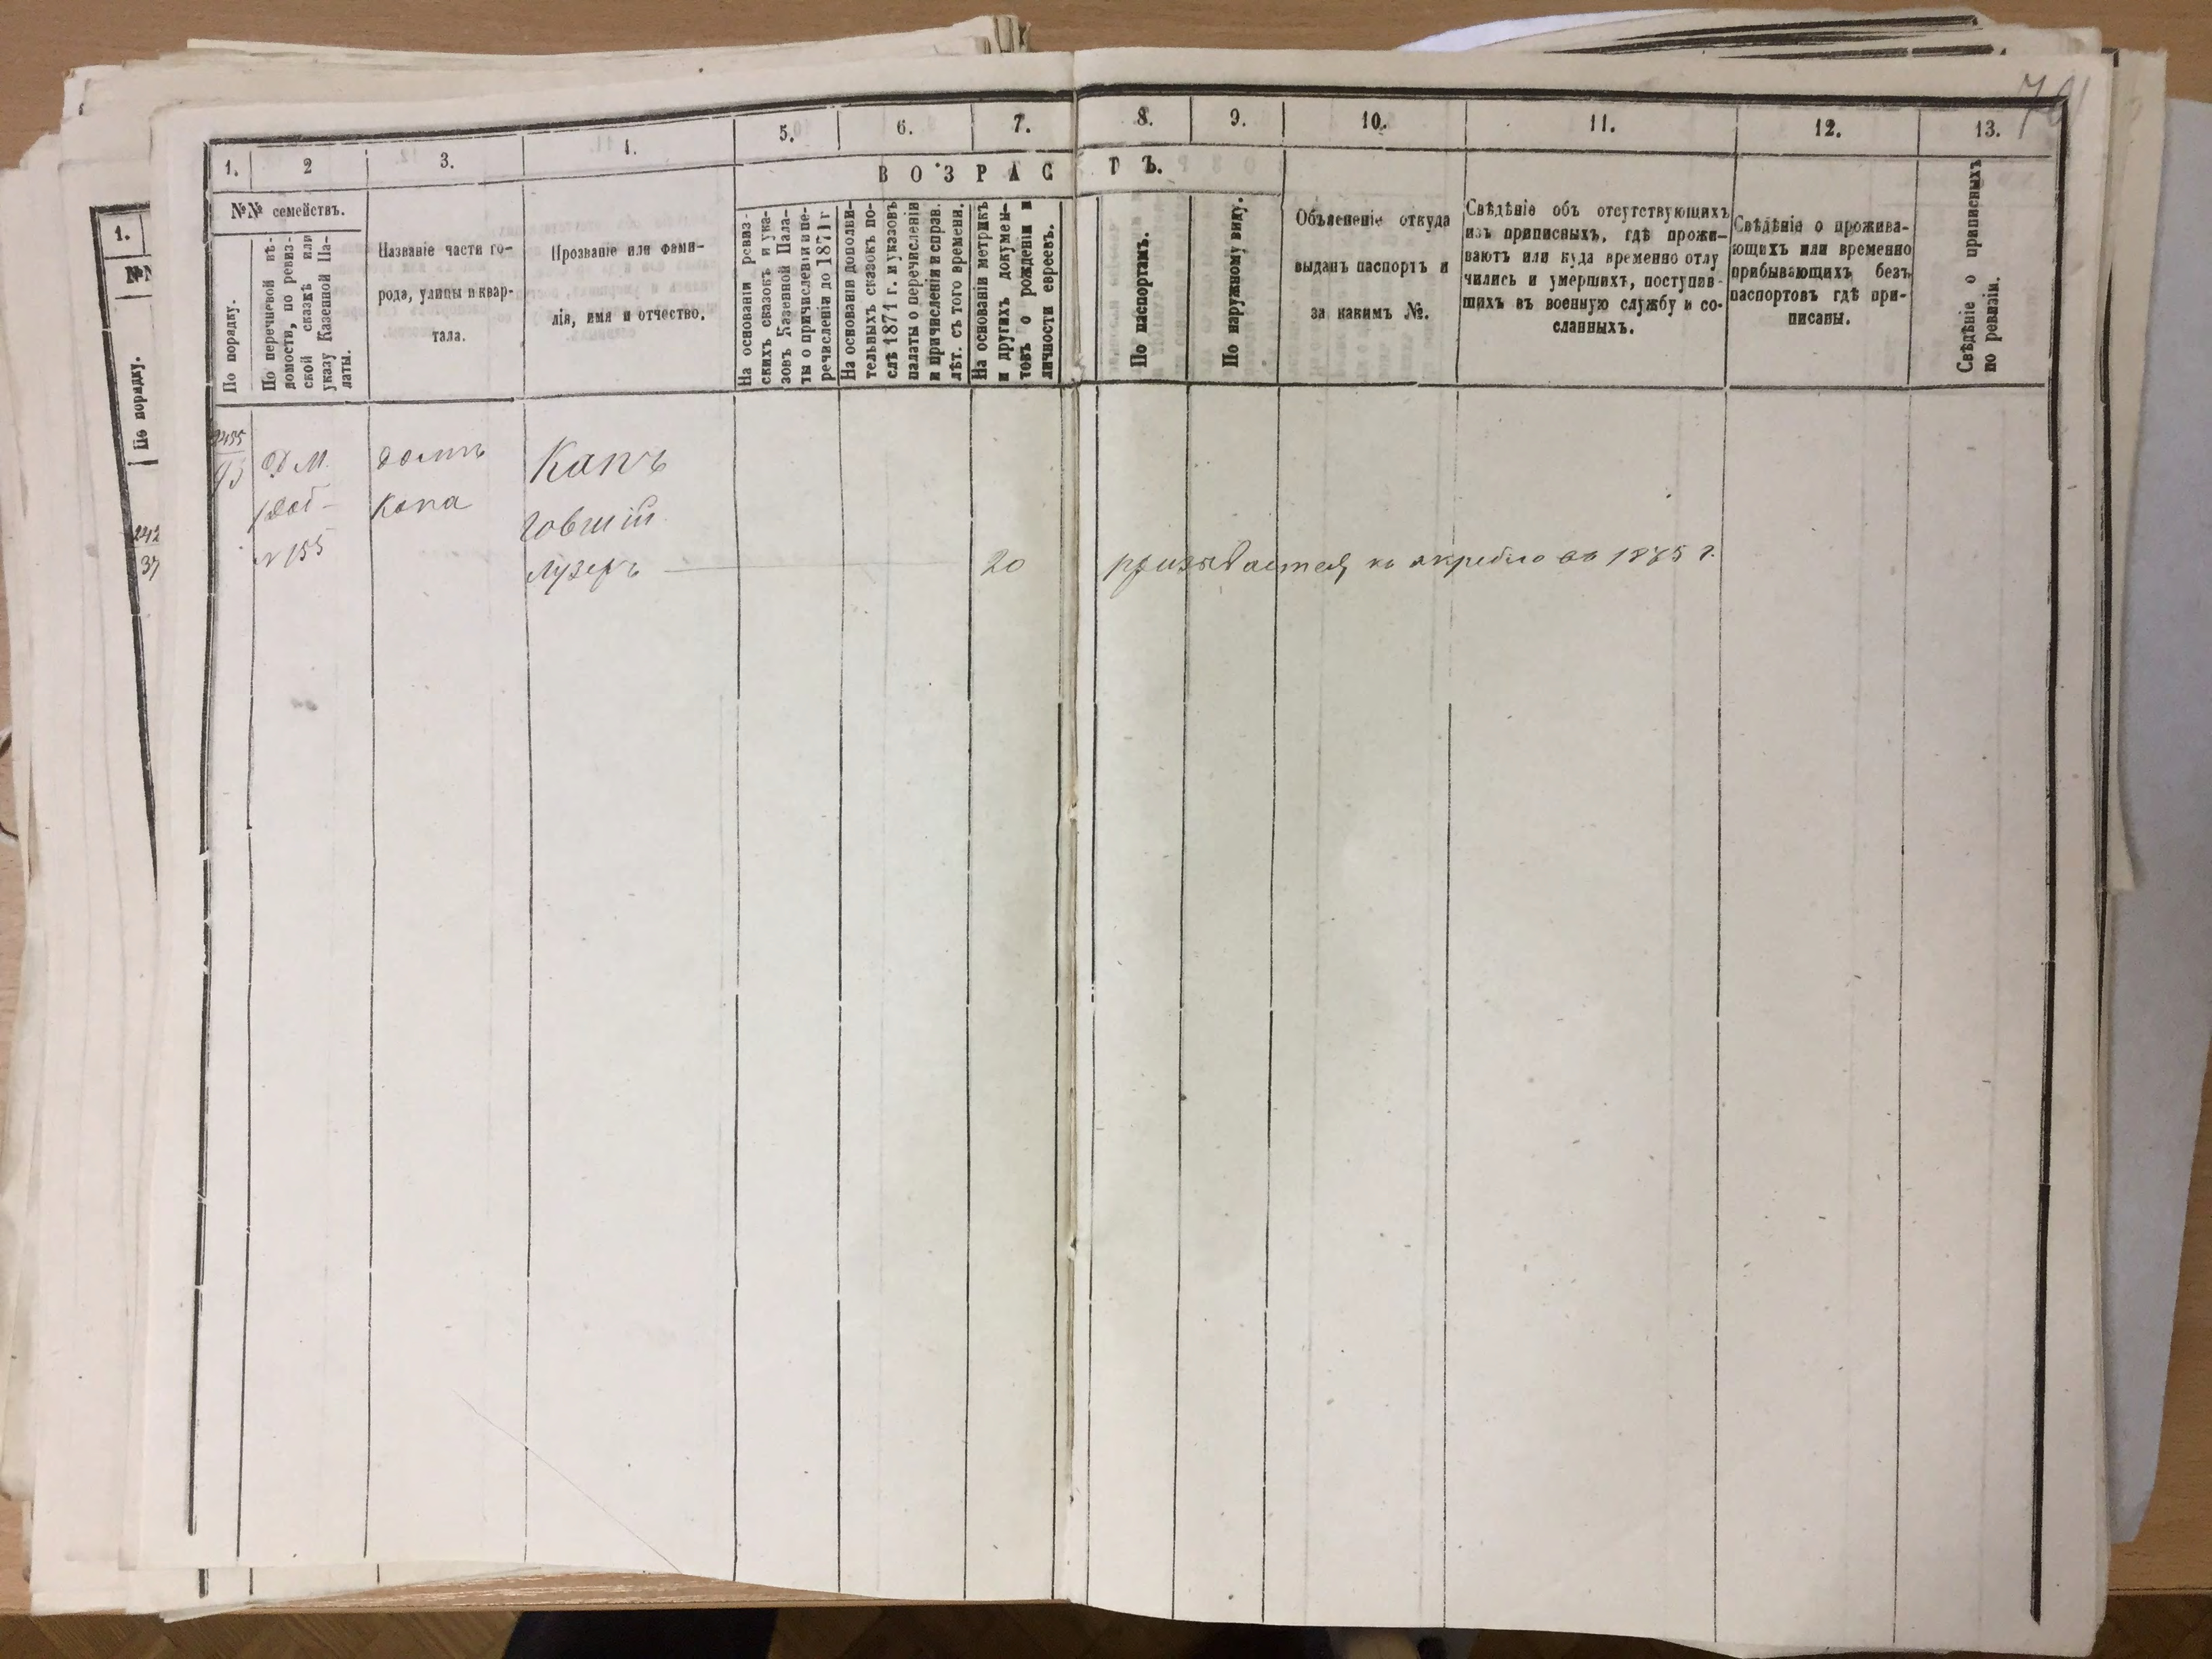 1.
2
3.
4.
5.
6.
7.
8.
9.
10.
11.
12.
13.
В О З Р А С Т Ъ.
№№ семействъ.
По порядку.
По перечневой вѣ-
домости, по ревиз-
ской сказкѣ или
указу Казенной Па-
латы.
Названіе части го-
рода, улицы и квар-
тала.
Прозваніе или фами-
лія, имя и отчество.
На основаніи ревиз-
скихъ сказокъ и ука-
зовъ Казенной Пала-
ты о причисленіи и пе-
речисленіи до 1871 г
На основаніи дополни-
тельныхъ сказокъ по-
слѣ 1871 г. и указовъ
палаты о перечисленіи
и причисленіи и справ.
лѣт. съ того времени.
На основаніи метрикъ
и другихъ докумен-
товъ о рожденіи и
личности евреевъ.
По паспортамъ.
По наружному виду.
Объясненіе откуда
выданъ паспортъ и
за какимъ №.
Свѣдѣніе объ отсутствующихъ
изъ приписныхъ, гдѣ прожи-
ваютъ или куда временно отлу
чились и умершихъ, поступив-
шихъ въ военную службу и со-
сланныхъ.
Свѣдѣніе о прожива-
ющихъ или временно
прибывающихъ безъ
паспортовъ гдѣ при-
писаны.
Свѣдѣніе о приписныхъ
по ревизіи.
домъ Капъ
Капа
№ 155
Лузеръ 20 призывается къ жребію въ 1885 г.
1.
По порядку.
242
37